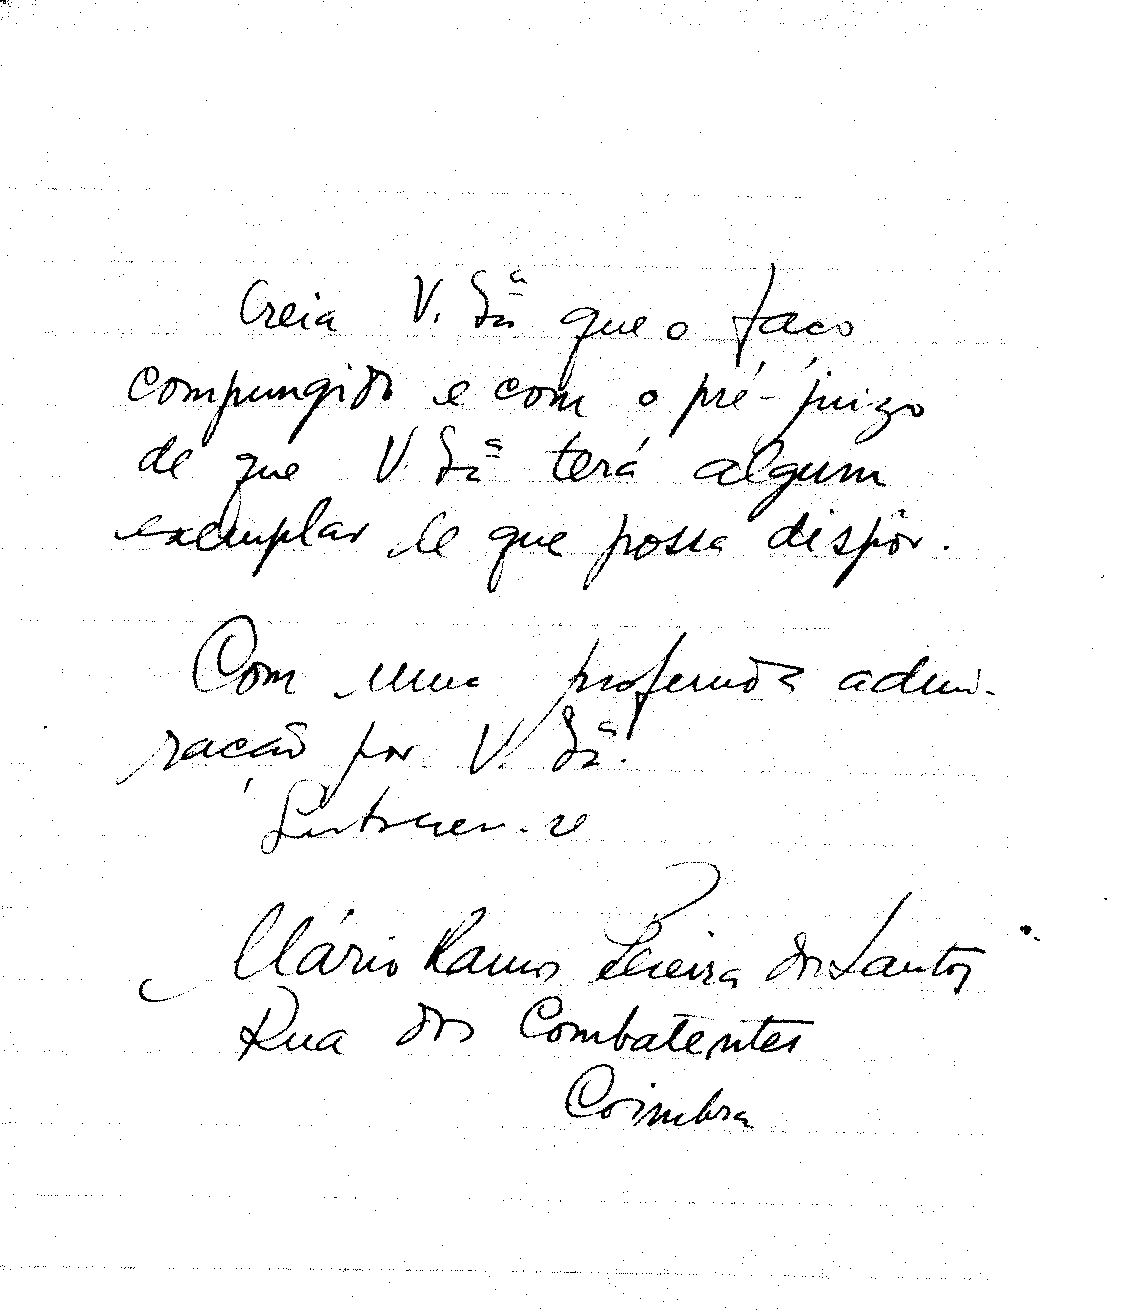 Creia V. Sª que o faço
compungido e com o pré-juizo
de que V. Sª terá algum
exemplar de que possa dispôr.
Com uma profunda admi-
ração por V. Sª.
Subscreve-se
Mário Ramos Pereira dos Santos
Rua dos Combatentes
Coimbra